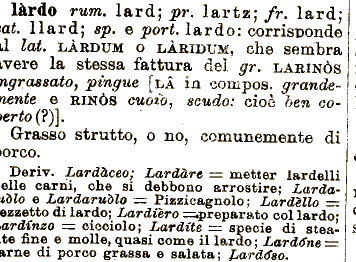 làrdo rum. lard; pr. lartz; fr. lard;
cat. llard; sp. e port. lardo: corrisponde
al lat. LÀRDUM o LÀRIDUM, che sembra
avere la stessa fattura del gr. LARINÒS
ingrassato, pingue [LÂ in compos. grande-
mente e RINÒS cuoio, scudo: cioè ben co-
perto (?)].
Grasso strutto, o no, comunemente di
porco.
Deriv. Lardàceo; Lardàre = metter lardelli
nelle carni, che si debbono arrostire; Larda-
iuòlo e Lardaruòlo = Pizzicagnolo; Lardèllo =
pezzetto di lardo; Lardièro = preparato col lardo;
Lardínzo = cicciolo; Lardíte = specie di stea-
tite fine e molle, quasi come il lardo; Lardóne =
carne di porco grassa e salata; Lardóso.